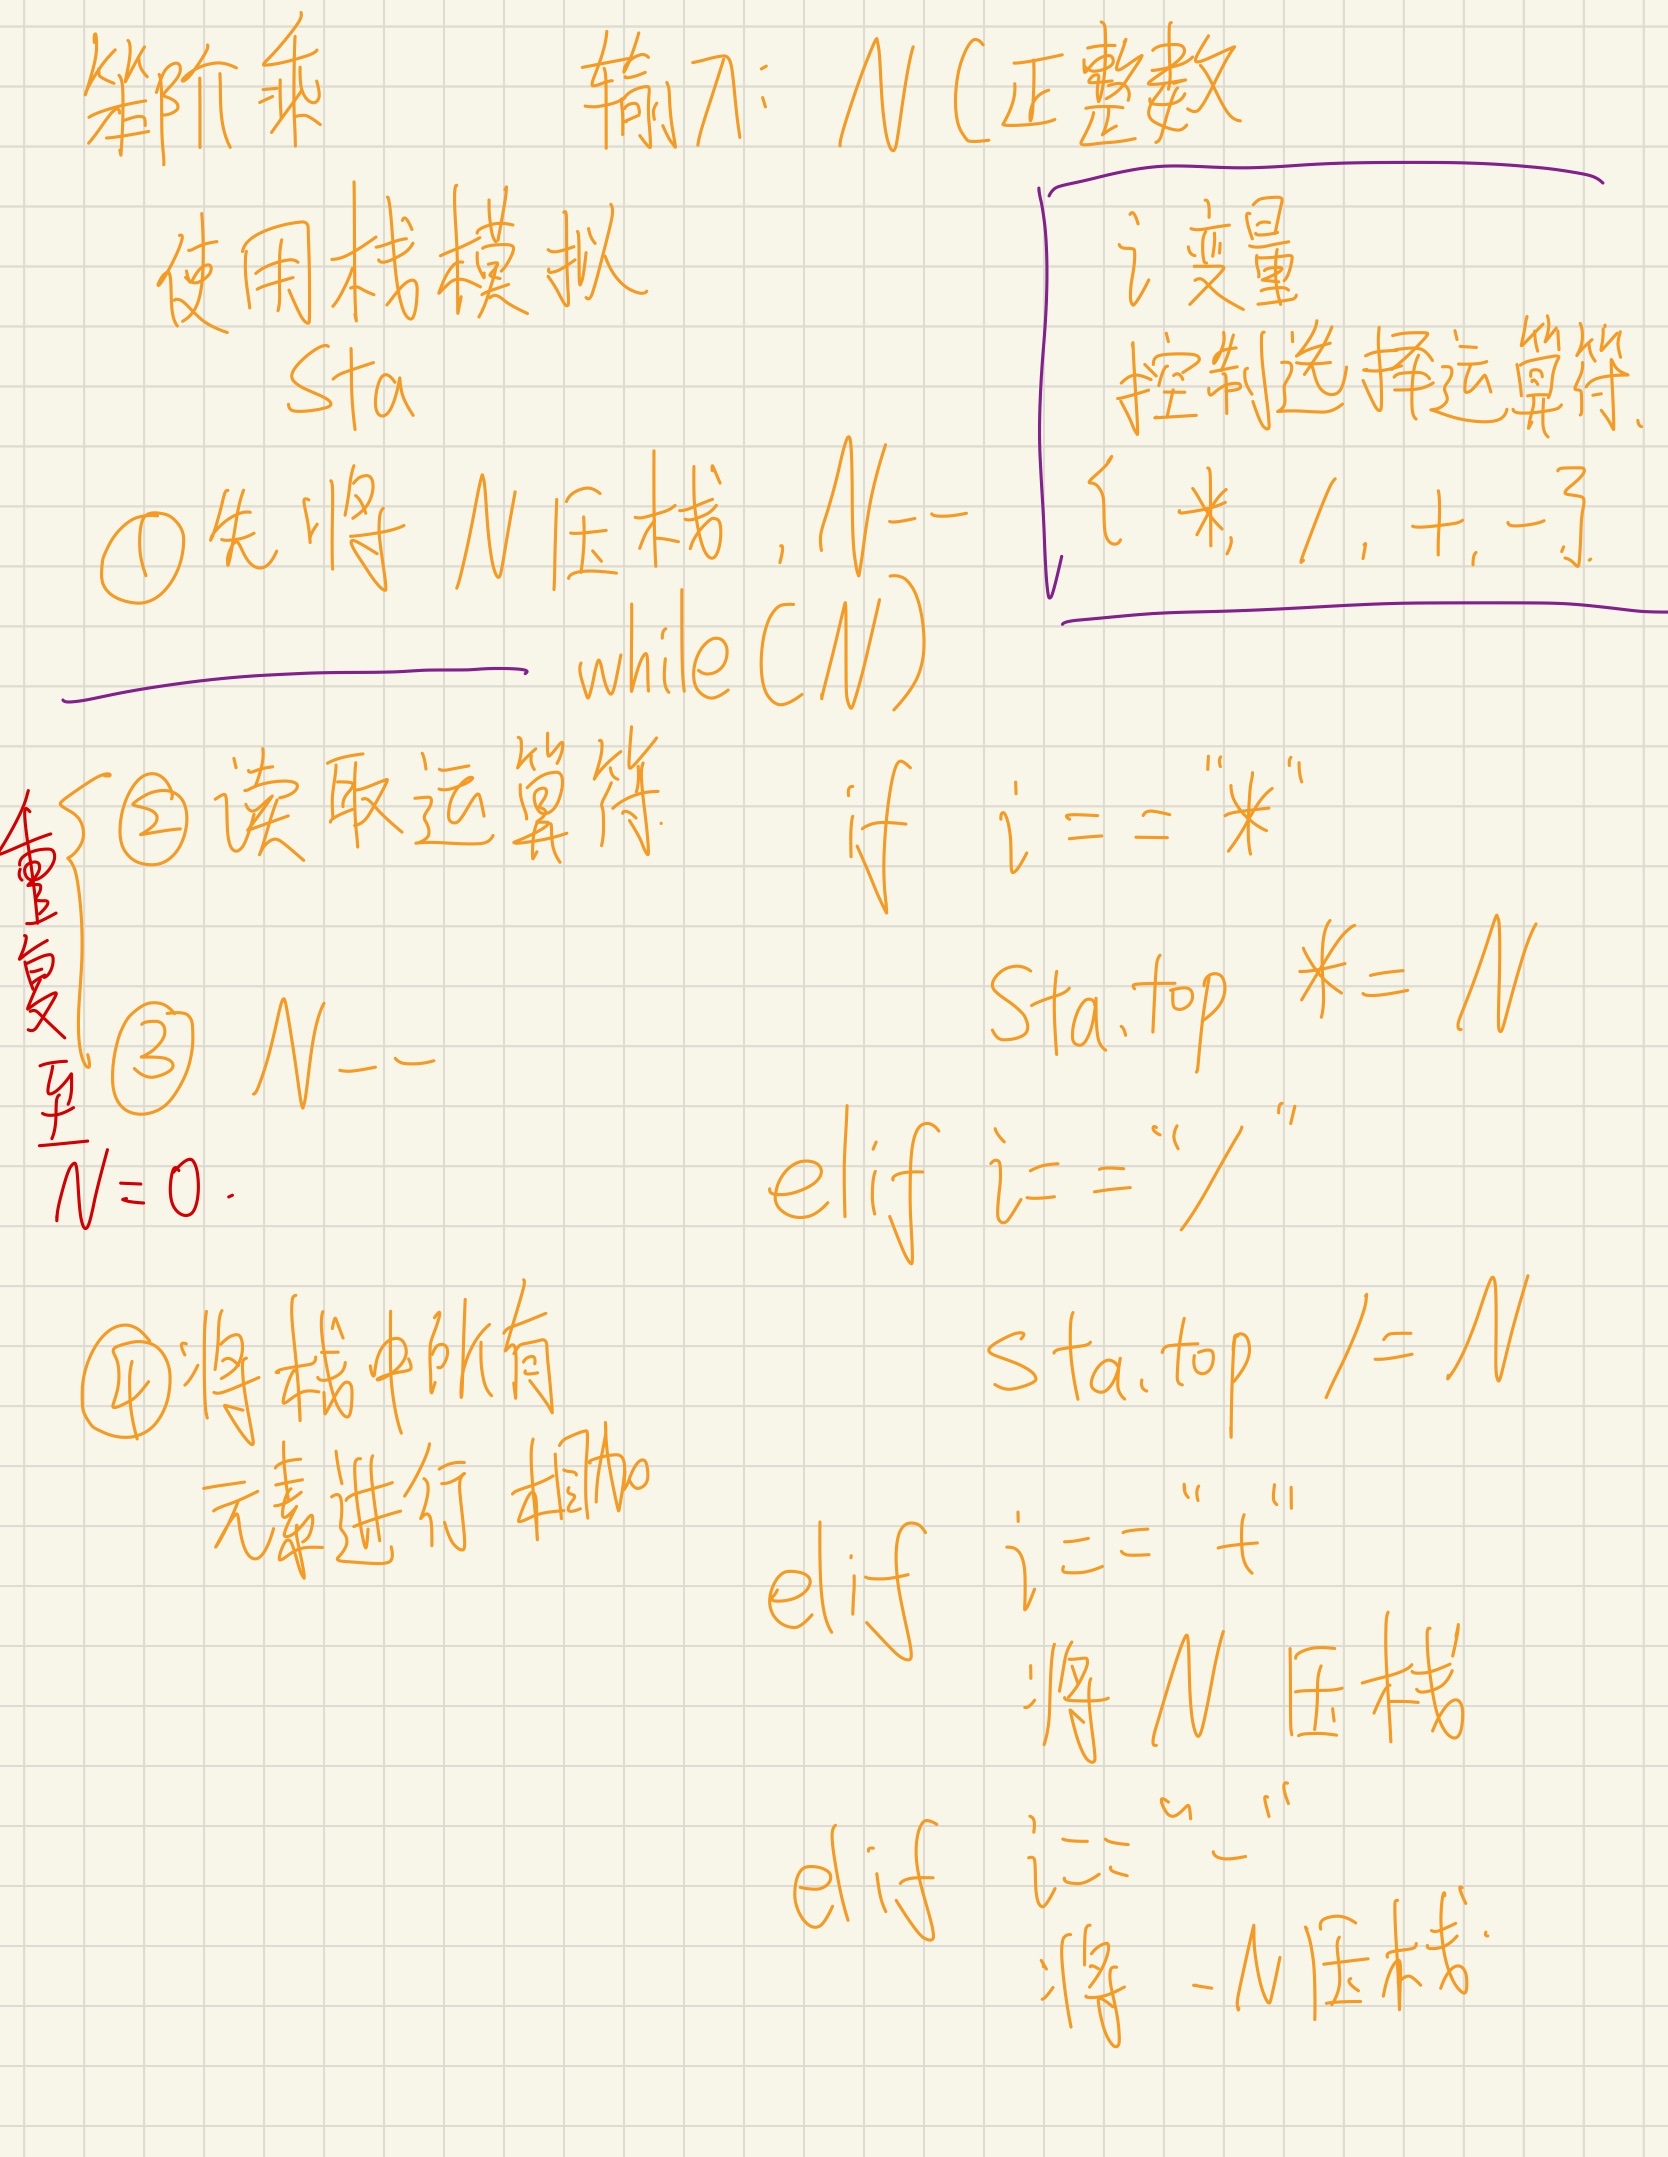 笨阶乘 输入: N (正整数
使用栈模拟
Sta
i 变量
控制选择运算符.
{ *, /, +, - }.
①先将 N 压栈, N--
while(N)
②读取运算符.
③ N--
重复至
N=0.
④将栈中所有
元素进行相加
if i == "*"
Sta.top *= N
elif i == "/"
sta.top /= N
elif i == "+"
将 N 压栈
elif i == "-"
将 -N 压栈.